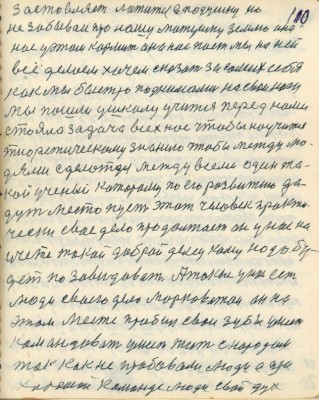 110
заставляет платить единицу но
не забывай про нашу матушку землю она
нас уртом кормит она нас поет мы на ней
всё делаем хочем сказать за самих себя
как мы быстро поднимали на свои ногу
мы пошли у школу учится перед нами
стояло задача всех нас чтобы научится
этиоретическому знанию чтобы между лю-
дями сделотду между всеми один та-
кой ученый которому по его развитию да-
дут место пуст этот человек практи-
чески свае дело продолжает он у нас на
щете такой доброй делу кому надо бу-
дет по завидоват. А такое уже ест
люди своего дело
этом месте пробил свои зубы умеет
командоват умеет жит с народом
так как не пробовали люди
команде люди свой дух